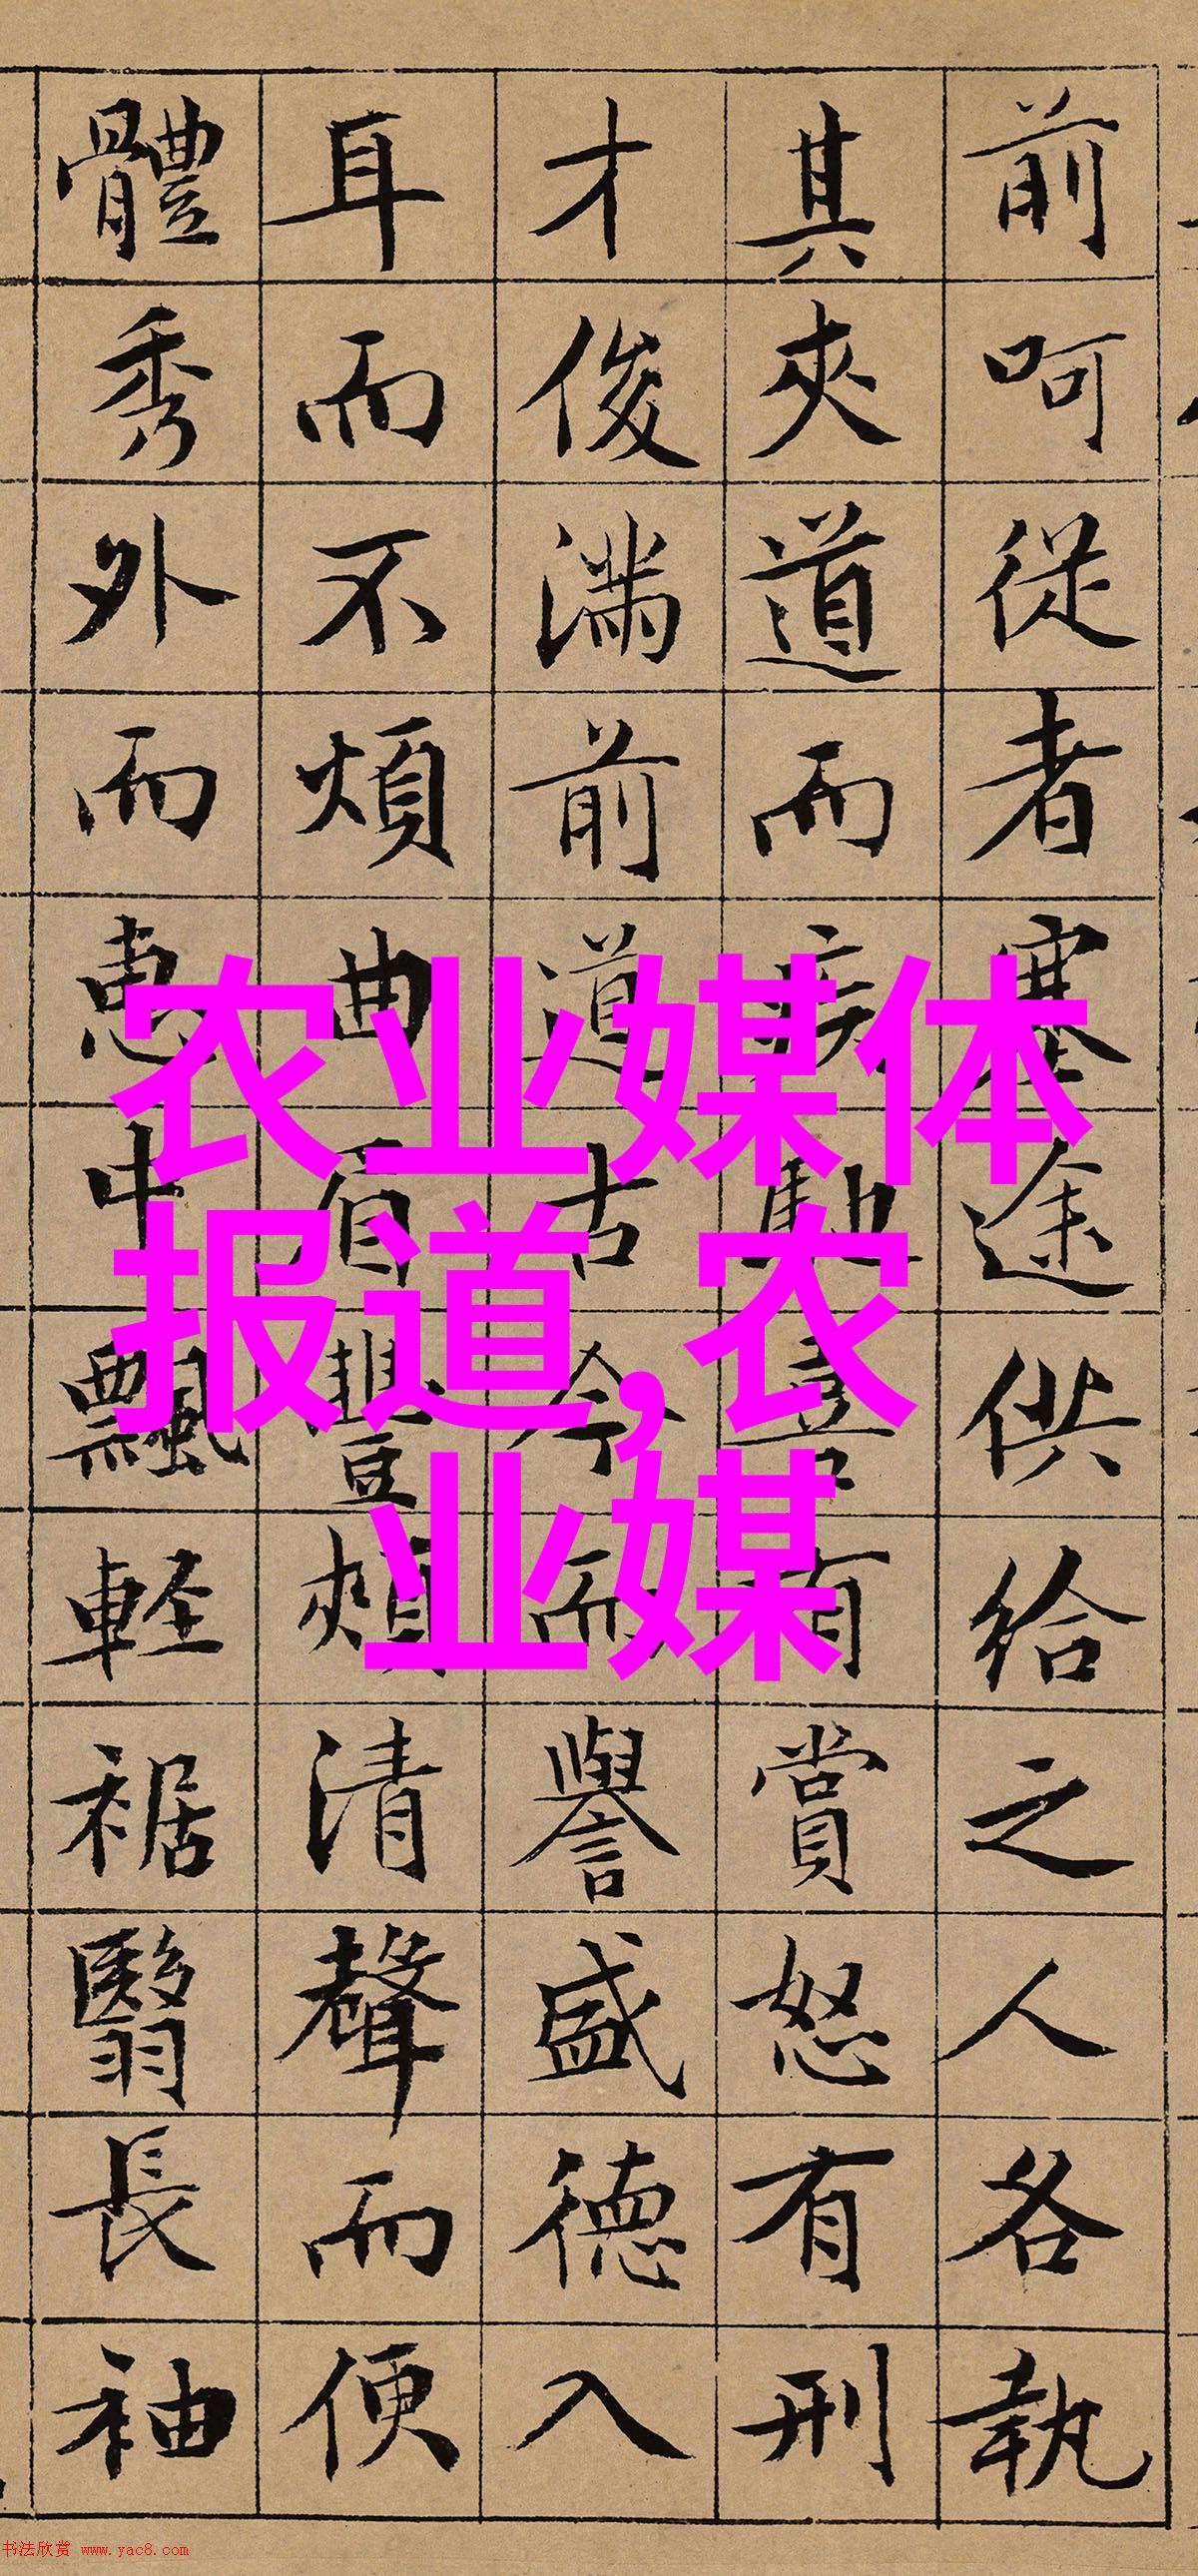 前呵從者塞途供給之人各執
其夾道而疾馳喜有賞怒有刑
才俊满前道古今而譽盛德入
耳而不煩曲眉豐頰清聲而便
體秀外而惠中飄軽裾翳長袖
农业媒体
报道,农
业媒
书法欣赏 www.yac8.com